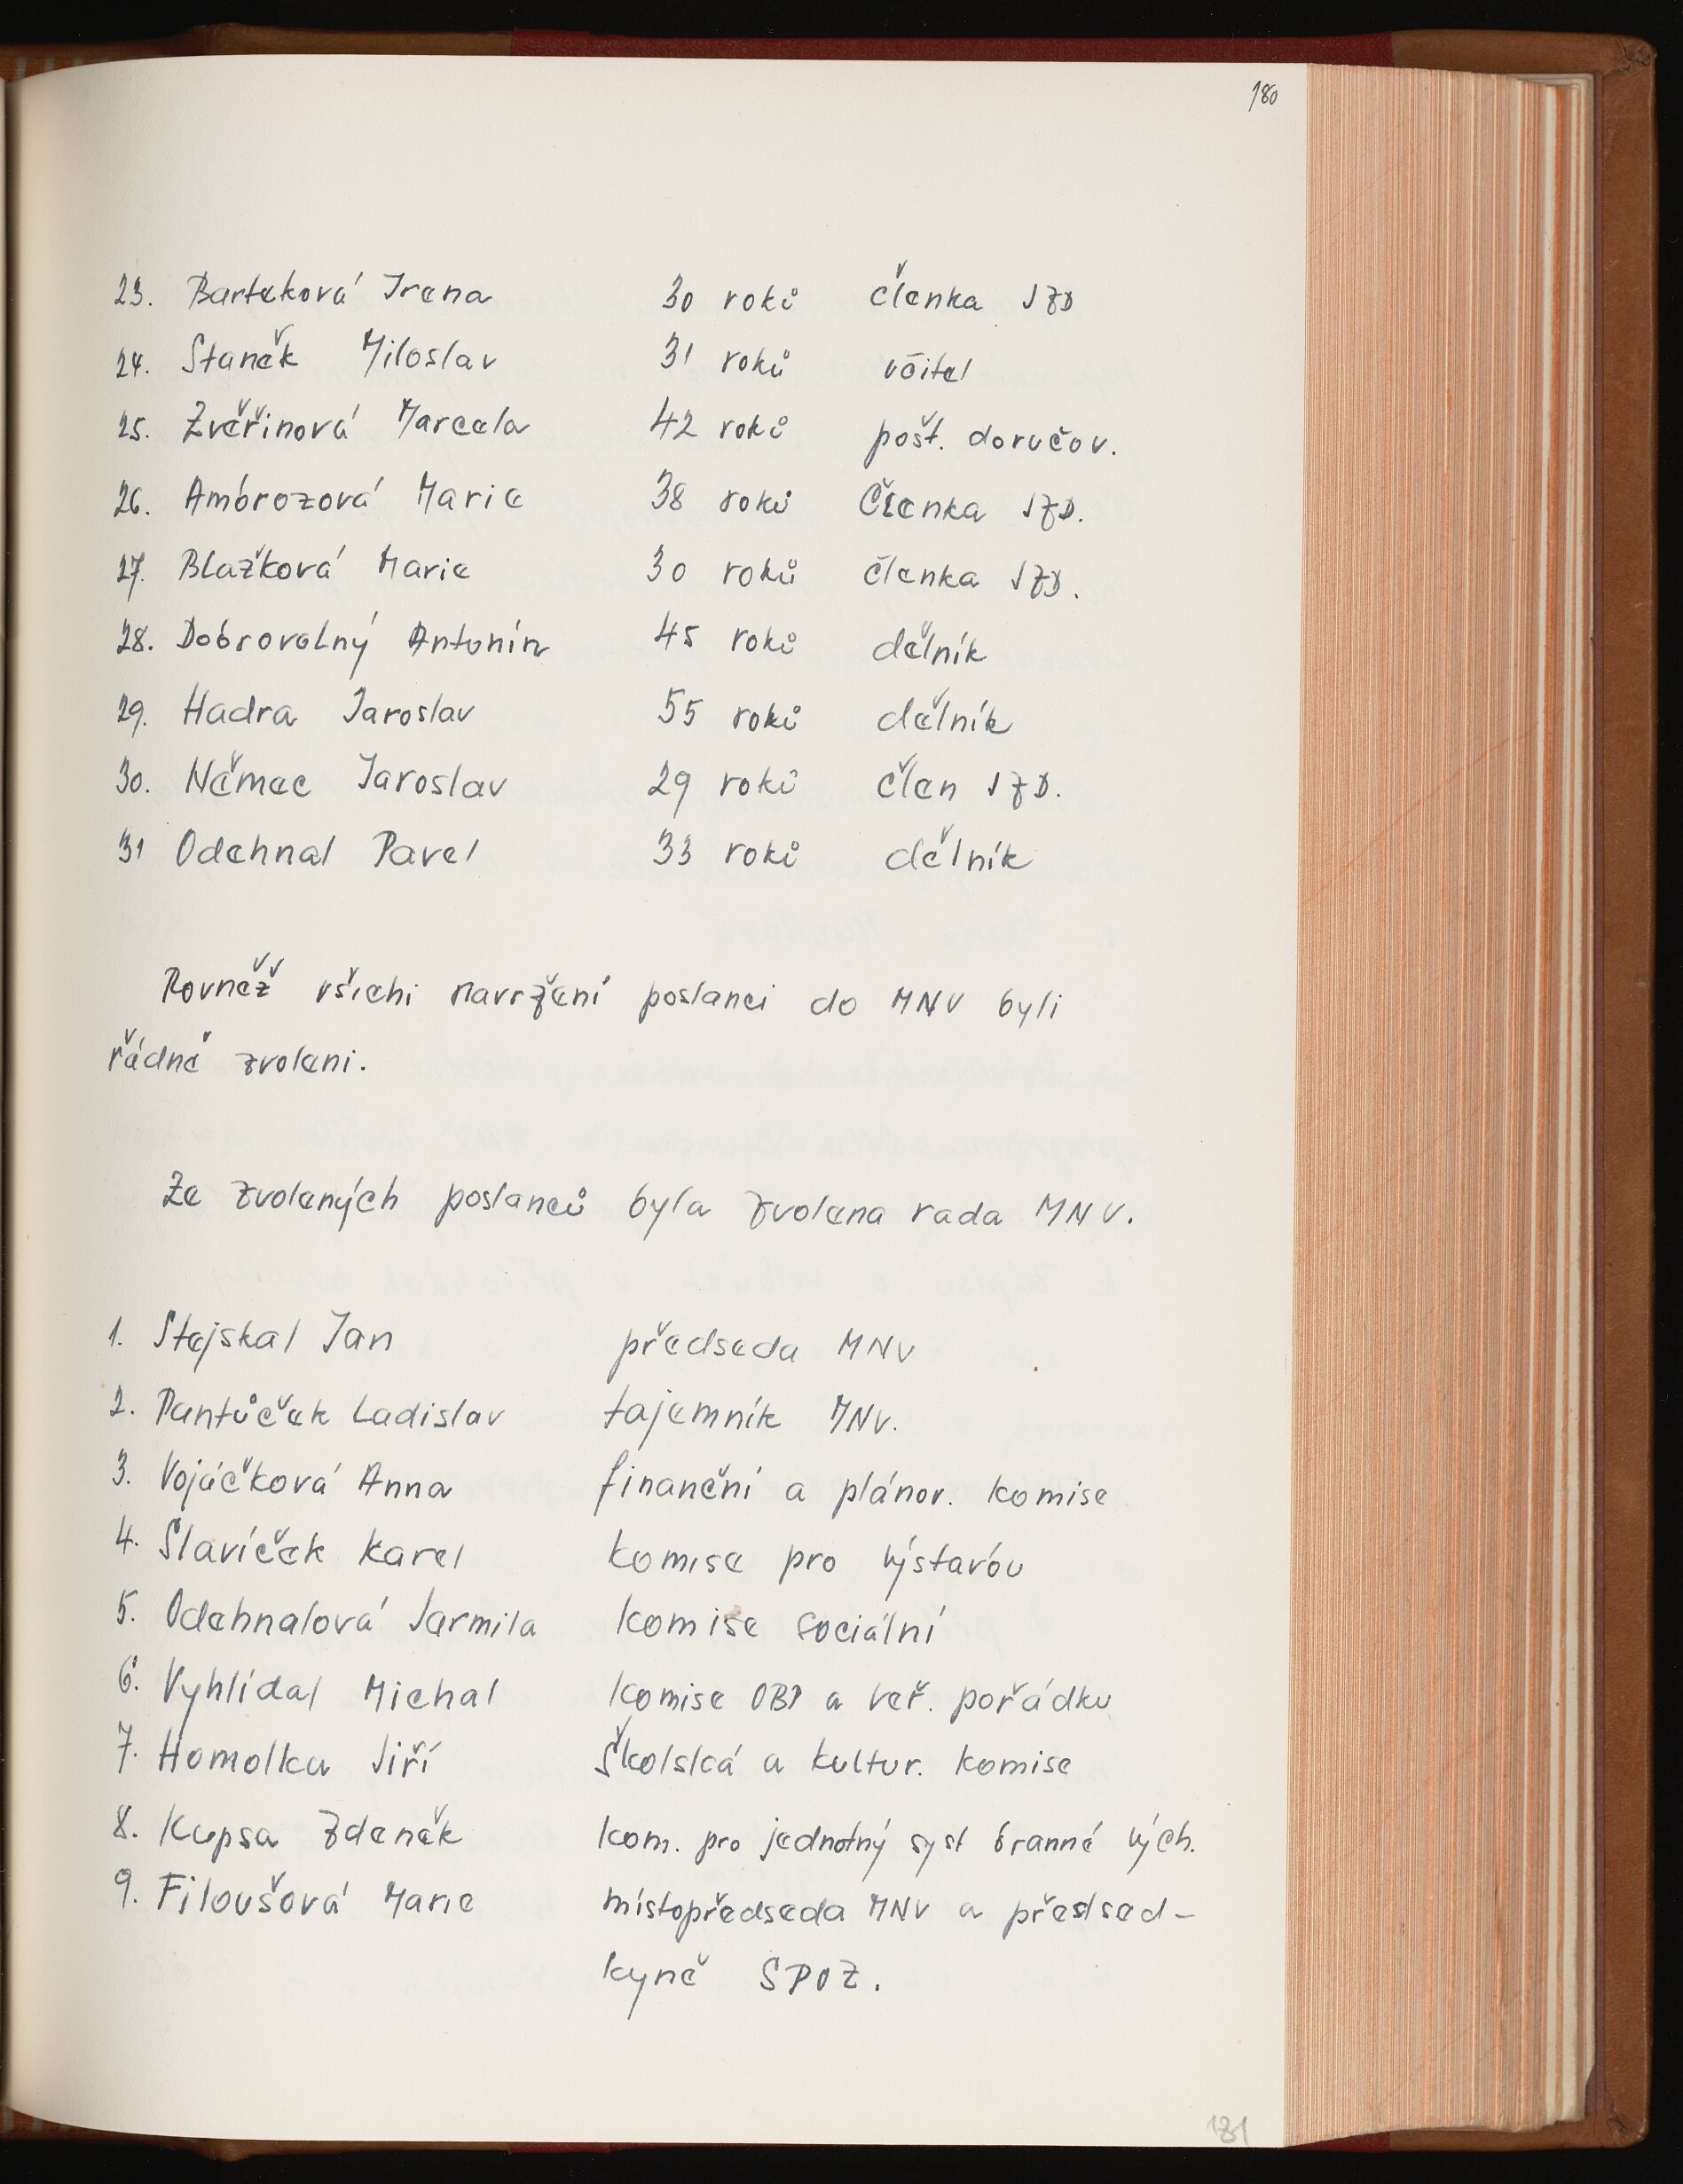 180
23. Barteková Irena 30 roků členka JZD
24. Staněk Miloslav 31 roků učitel
25. Zvěřinová Marcela 42 roků pošt. doručov.
26. Ambrozová Marie 38 roků členka JZD.
27. Blažková Marie 30 roků členka JZD.
28. Dobrovolný Antonín 45 roků dělník
29. Hadra Jaroslav 55 roků dělník
30. Němec Jaroslav 29 roků člen JZD.
31 Odehnal Pavel 33 roků dělník
Rovněž všichi navržení poslanci do MNV byli
řádně zvoleni.
Ze zvolených poslanců byla zvolena rada MNV.
1. Stejskal Jan předseda MNV
2. Pantůček Ladislav tajemník MNV.
3. Vojáčková Anna finanční a plánov. komise
4. Slavíček Karel komise pro výstavbu
5. Odehnalová Jarmila komise sociální
6. Vyhlídal Michal komise OBP a veř. pořádku
7. Homolka Jiří Školská a kultur. komise
8. Kupsa Zdeněk kom. pro jednotný syst branné vých.
9. Filoušová Marie místopředseda MNV a předsed-
kyně SPOZ.
181